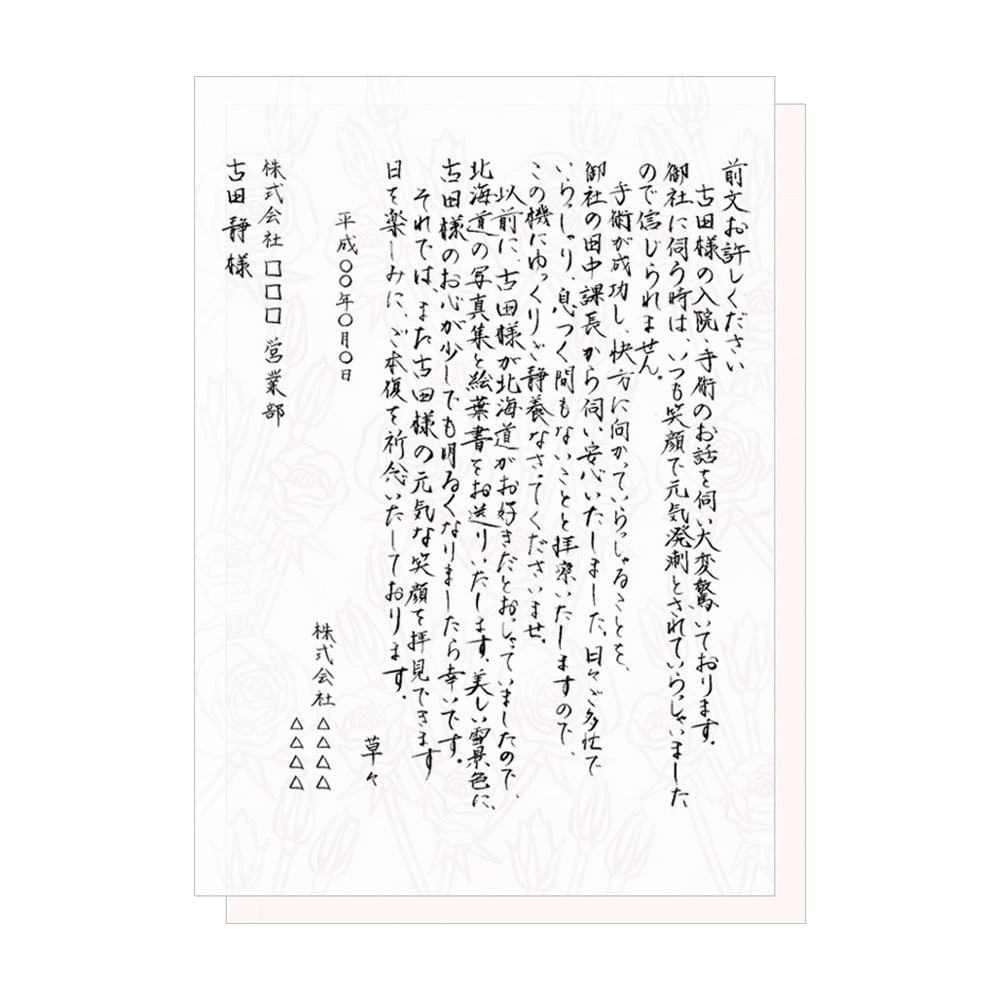 前文お許しください
古田様の入院・手術のお話を伺い大変驚いております。
御社に伺う時は、いつも笑顔で元気溌剌とされていらっしゃいました
ので信じられません。
手術が成功し、快方に向かっていらっしゃることを、
御社の田中課長から伺い安心いたしました。日々ご多忙で
いらっしゃり、息つく間もないことと拝察いたしますので、
この機にゆっくりご静養なさってくださいませ。
以前に、古田様が北海道がお好きだとおっしゃっていましたので、
北海道の写真集と絵葉書をお送りいたします。美しい雪景色に、
古田様のお心が少しでも明るくなりましたら幸いです。
それでは、また古田様の元気な笑顔を拝見できます
日を楽しみに、ご本復を祈念いたしております。
草々
平成〇〇年〇月〇日
株式会社 △△△△
△△△△
株式会社 □□□ 営業部
古田 静様